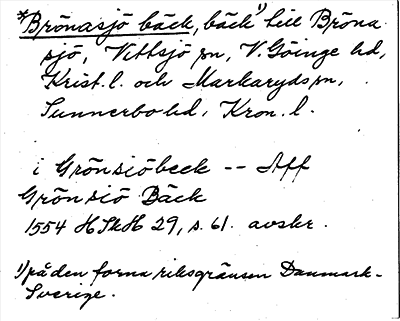 *Brönasjö bäck, bäck¹) till Bröna
sjö, Vittsjö sn, V. Göinge hd,
Krist. l. och Markaryds sn,
Sunnerbo hd, Kron. l.
i Grönsiöbeck -- Aff
Grönsiö Bäck
1554 HSkH 29, s. 61. avskr.
¹) på den forna riksgränsen Danmark-
Sverige.